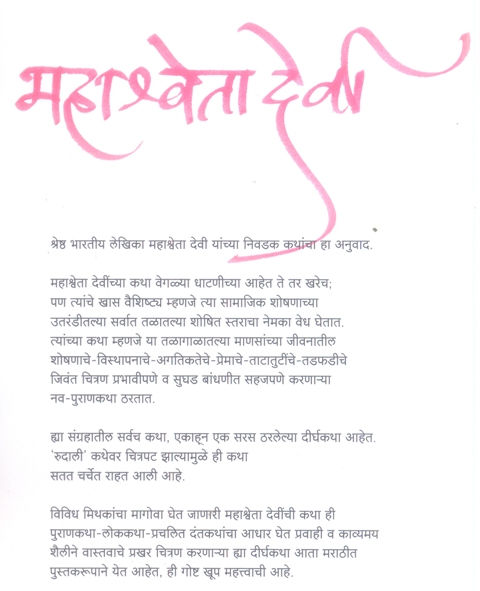 महाश्वेता देवी
श्रेष्ठ भारतीय लेखिका महाश्वेता देवी यांच्या निवडक कथांचा हा अनुवाद.
महाश्वेता देवींच्या कथा वेगळ्या धाटणीच्या आहेत ते तर खरेच;
पण त्यांचे खास वैशिष्ट्य म्हणजे त्या सामाजिक शोषणाच्या
उतरंडीतल्या सर्वात तळातल्या शोषित स्तराचा नेमका वेध घेतात.
त्यांच्या कथा म्हणजे या तळागाळातल्या माणसांच्या जीवनातील
शोषणाचे-विस्थापनाचे-अगतिकतेचे-प्रेमाचे-ताटातुटींचे-तडफडीचे
जिवंत चित्रण प्रभावीपणे व सुघड बांधणीत सहजपणे करणाऱ्या
नव-पुराणकथा ठरतात.
ह्या संग्रहातील सर्वच कथा, एकाहून एक सरस ठरलेल्या दीर्घकथा आहेत.
'रुदाली' कथेवर चित्रपट झाल्यामुळे ही कथा
सतत चर्चेत राहत आली आहे.
विविध मिथकांचा मागोवा घेत जाणारी महाश्वेता देवींची कथा ही
पुराणकथा-लोककथा-प्रचलित दंतकथांचा आधार घेत प्रवाही व काव्यमय
शैलीने वास्तवाचे प्रखर चित्रण करणाऱ्या ह्या दीर्घकथा आता मराठीत
पुस्तकरूपाने येत आहेत, ही गोष्ट खूप महत्त्वाची आहे.